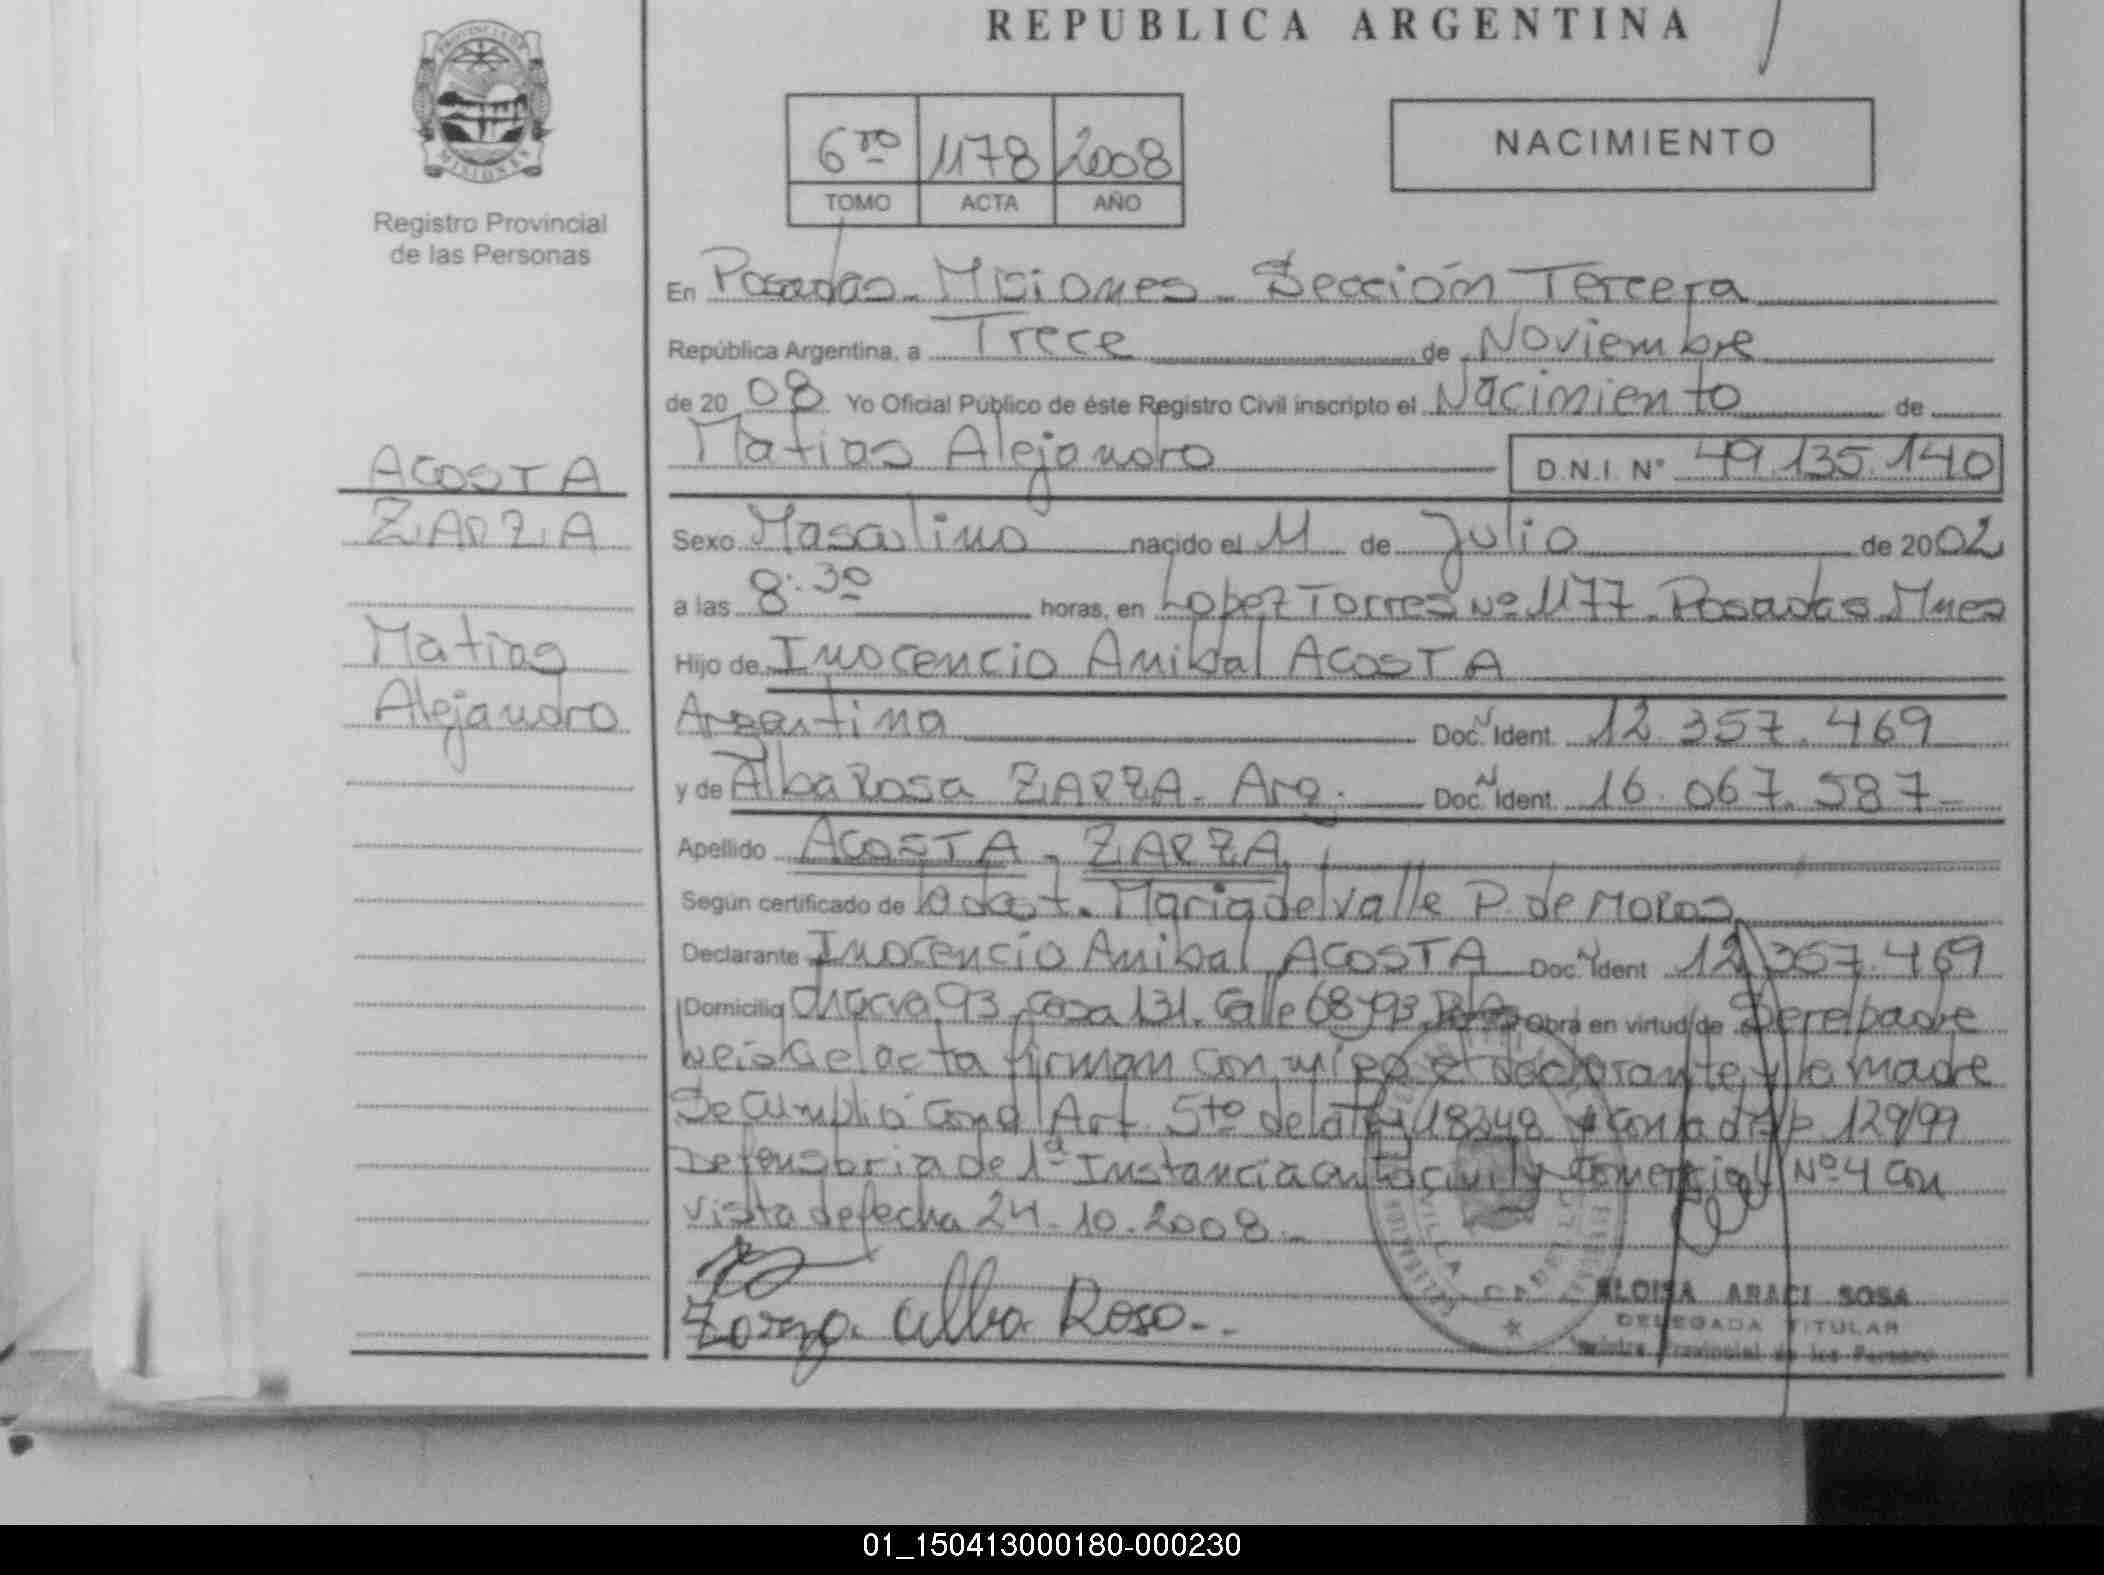 REPUBLICA ARGENTINA
PROVINCIA DE
MISIONES
Registro Provincial
de las Personas
6to 1178 2008
TOMO ACTA AÑO
NACIMIENTO
En Posadas - Misiones - Sección Tercera
República Argentina, a Trece de Noviembre
de 2008 Yo Oficial Público de éste Registro Civil inscripto el Nacimiento de
Matias Alejandro D.N.I. N° 49.135.140
ACOSTA
ZARZA
Matias
Alejandro
Sexo Masculino nacido el 11 de Julio de 2002
a las 8:30 horas, en Lopez Torres Nº 1177 - Posadas Mnes
Hijo de Inocencio Anibal ACOSTA
Argentina Doc. N Ident. 12.357.469
y de Alba Rosa ZARZA - Arg. Doc. N Ident. 16.067.587-
Apellido ACOSTA - ZARZA
Según certificado de la obst. Maria del valle P. de Moros
Declarante Inocencio Anibal ACOSTA Doc. N Ident 12.357.469
Domicilio Chacra 93, casa 131. Calle 68 y 93 Obra en virtud de Ser el padre
leída el acta firman conmigo el declarante y la madre
Se cumplió con el Art. 5to de la Ley 18248 y con la 129/99
Defensoria de 1ª Instancia en lo civil y Comercial Nº 4 con
vista de fecha 24.10.2008.-
Zarza Alba Rosa.-
ELOISA ARACI SOSA
DELEGADA TITULAR
Registro Provincial de las Personas
VILLA CABELLO
01_150413000180-000230